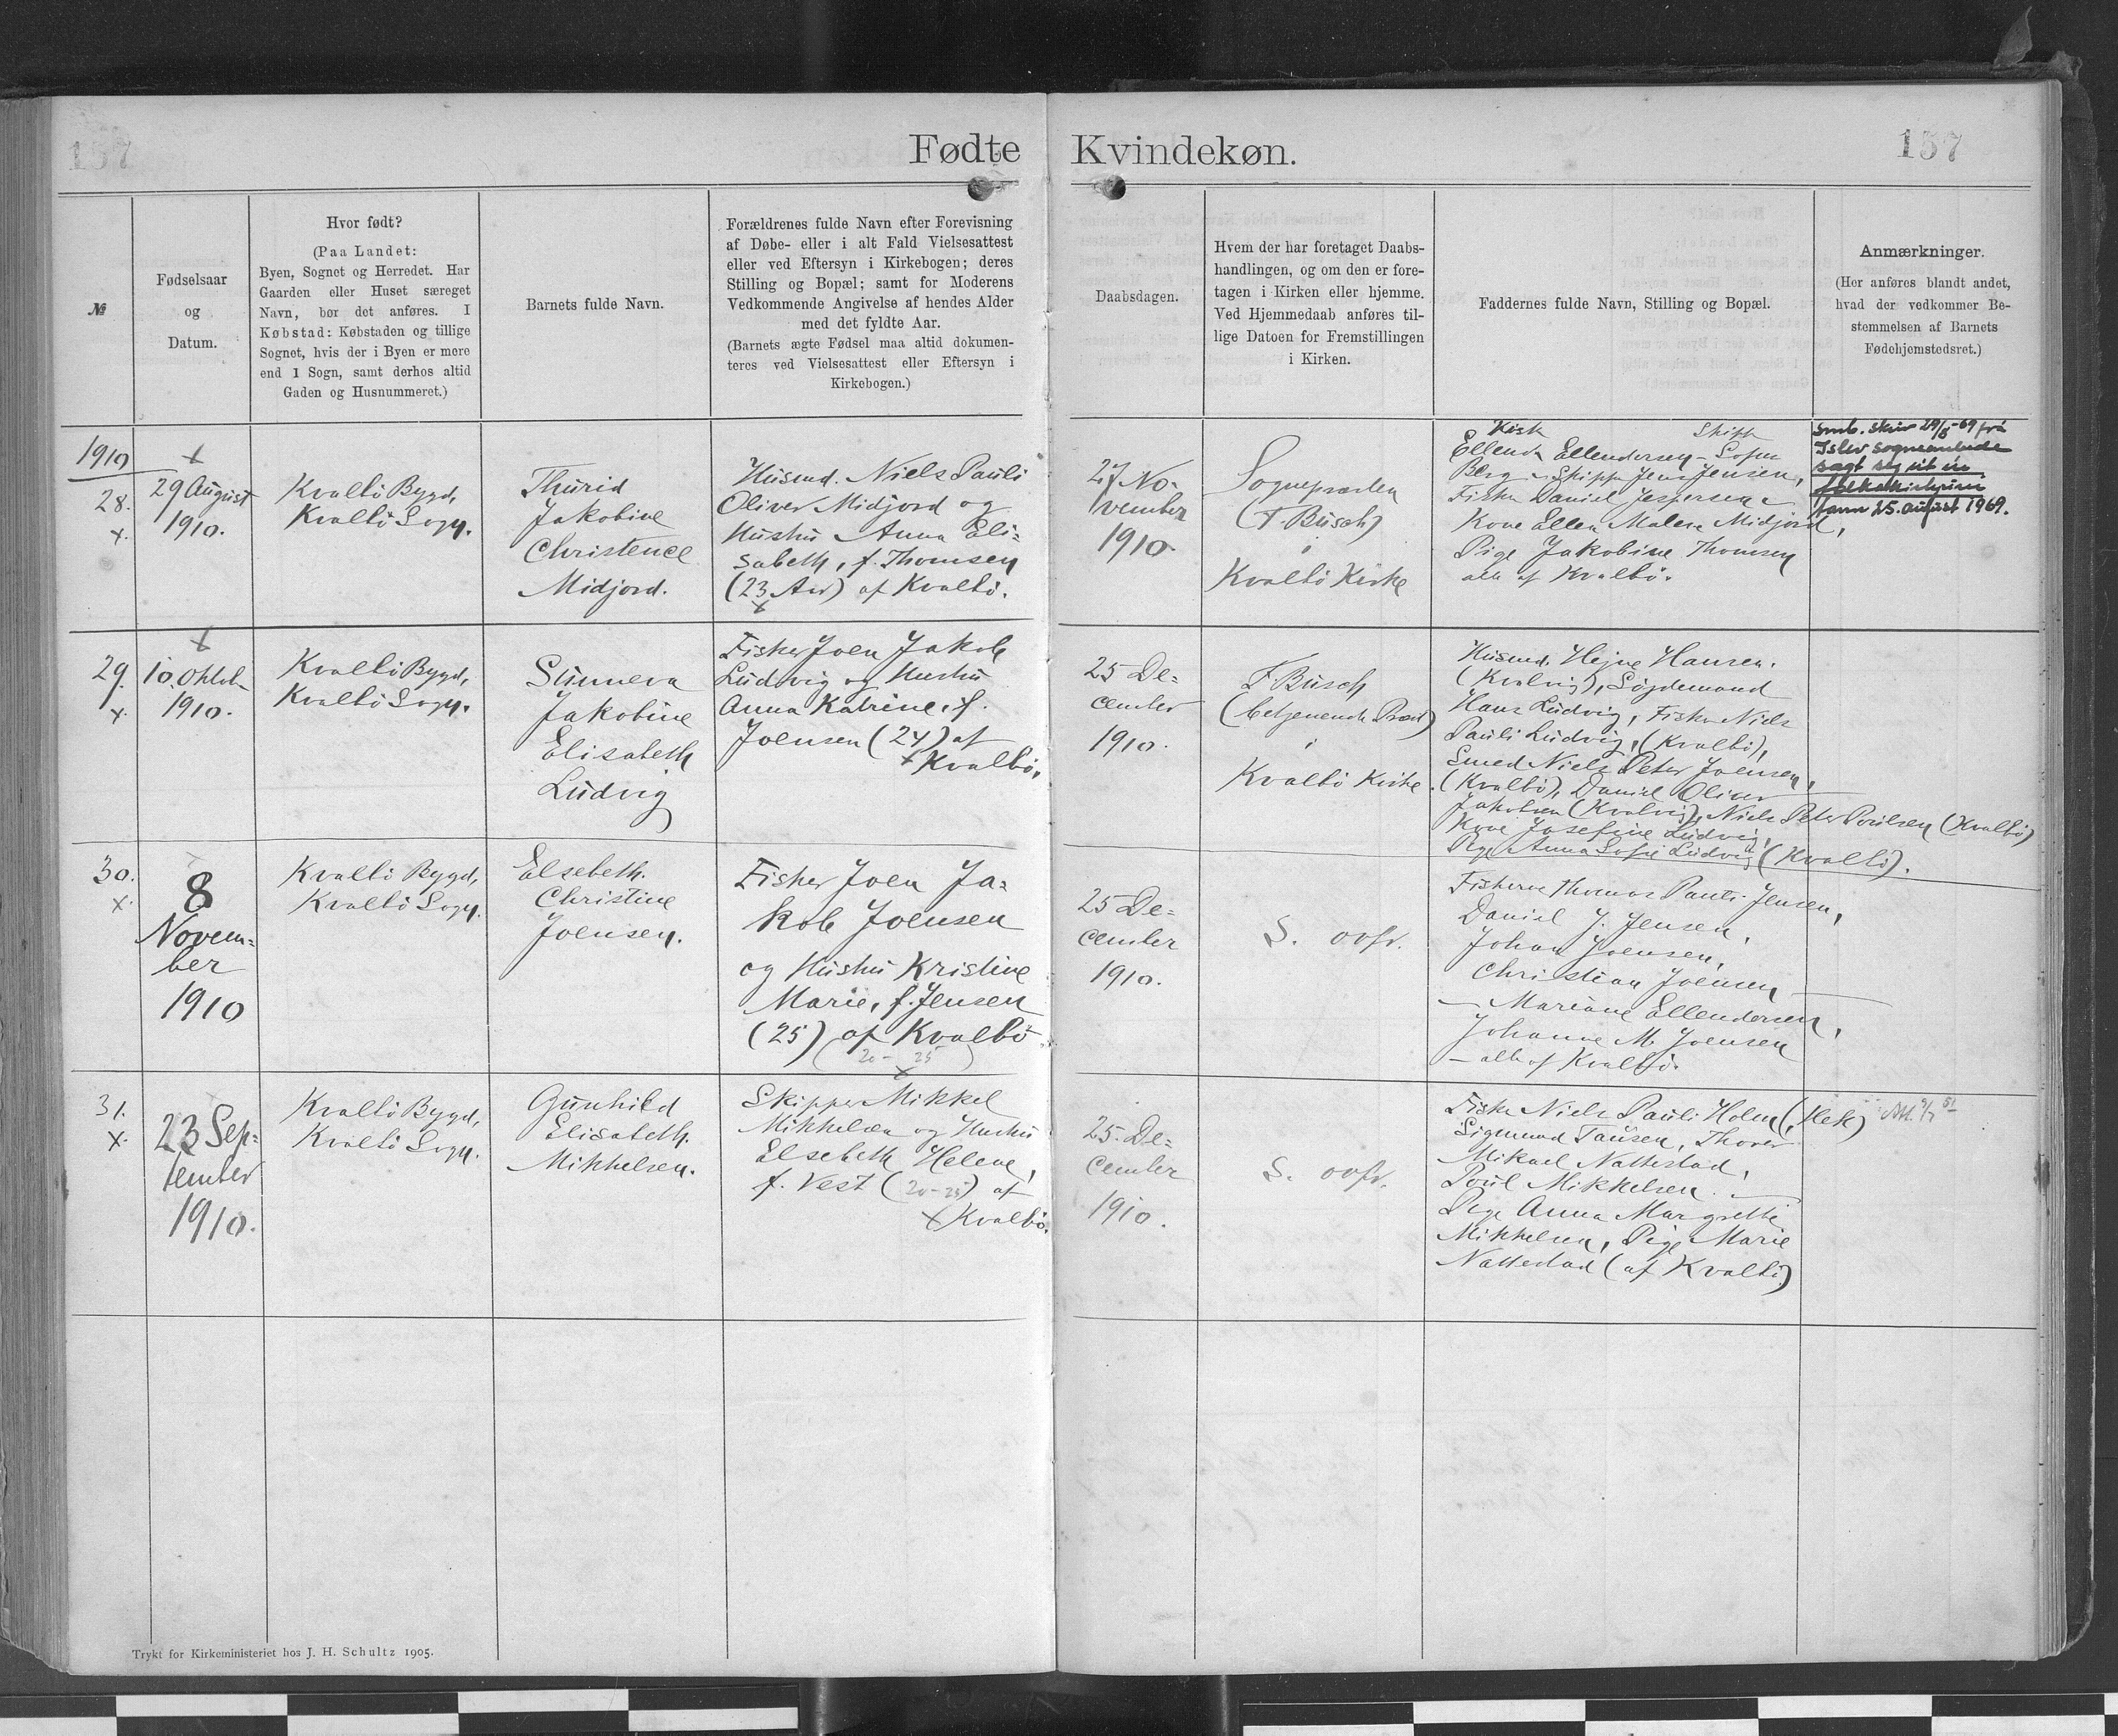 157
Fødte
Kvindekøn.
157
№
Fødselsaar
og
Datum.
Hvor født?
(Paa Landet:
Byen, Sognet og Herredet. Har
Gaarden eller Huset særeget
Navn, bør det anføres. I
Købstad: Købstaden og tillige
Sognet, hvis der i Byen er mere
end 1 Sogn, samt derhos altid
Gaden og Husnummeret.)
Barnets fulde Navn.
Forældrenes fulde Navn efter Forevisning
af Døbe- eller i alt Fald Vielsesattest
eller ved Eftersyn i Kirkebogen; deres
Stilling og Bopæl; samt for Moderens
Vedkommende Angivelse af hendes Alder
med det fyldte Aar.
(Barnets ægte Fødsel maa altid dokumen-
teres ved Vielsesattest eller Eftersyn i
Kirkebogen.)
Daabsdagen.
Hvem der har foretaget Daabs-
handlingen, og om den er fore-
tagen i Kirken eller hjemme.
Ved Hjemmedaab anføres til-
lige Datoen for Fremstillingen
i Kirken.
Faddernes fulde Navn, Stilling og Bopæl.
Anmærkninger.
(Her anføres blandt andet,
hvad der vedkommer Be-
stemmelsen af Barnets
Fødehjemstedsret.)
1910
28.
x
29 August
1910.
Kvalbö Bygd,
Kvalbö Sogn.
Thurid
Jakobine
Christence
Midjord.
Husmd. Niels Pauli
Oliver Midjord og
Hustru Anna Eli=
sabeth, f. Thomsen
(23 Aar) af Kvalbö.
27 No-
vember
1910.
Sognepræsten
(F. Busch)
i
Kvalbö Kirke
Ellendersen
Berg, Skipper Jens Jensen,
Fisker Daniel Jespersen
Kone Ellen Malene Midjord,
Pige Jakobine Thomsen
alle af Kvalbö.
smb. skriv 29/8-69 frá
Islev sogneembede
sagt seg út úr
fólkakirkjuni
tann 25. august 1969.
29.
x
10. Oktob
1910.
Kvalbö Bygd,
Kvalbö Sogn.
Sunneva
Jakobine
Elisabeth
Ludvig
Fisker Joen Jakob
Ludvig og Hustru
Anna Katrine, f.
Joensen (24) af
Kvalbö.
25 De=
cember
1910.
F Busch
(betjenende Præst)
i
Kvalbö Kirke.
Husmd. Hejne Hansen.
(Kvalvig),
Hans Ludvig, Fisker Niels
Pauli Ludvig, (Kvalbö),
Smed Niels Peter Joensen,
(Kvalbö), Daniel Oliver
Jakobsen (Kvalvig), Niels Peter Poulsen (Kvalbö)
Kone Josefine Ludvig,
Pige Anna Sofie Ludvig (Kvalbö).
30.
x
8
Novem=
ber
1910
Kvalbö Bygd,
Kvalbö Sogn.
Elsebeth
Christine
Joensen.
Fisker Joen Ja=
kob Joensen
og Hustru Kristine
Marie, f. Jensen
(25) af Kvalbö
(20-25)
25 De=
cember
1910.
S. ovfr.
Fiskerne Thomas Pauli Jensen,
Daniel J. Jensen,
Johan Joensen,
Christian Joensen
Mariane Ellendersen,
Johanne M. Joensen
alle af Kvalbö.
31.
x
23 Sep=
tember
1910.
Kvalbö Bygd,
Kvalbö Sogn.
Gunhild
Elisabeth
Mikkelsen.
Skipper Mikkel
Mikkelsen og Hustru
Elsebeth Helene,
f. Vest (20-25) af
Kvalbö.
25. De=
cember
1910.
S. ovfr.
Fisker Niels Pauli Holm,
Sigmund Tausen,
Mikael Nattestad,
Poul Mikkelsen
Pige Anna Margrethe
Mikkelsen, Pige Marie
Nattestad (af Kvalbö)
Trykt for Kirkeministeriet hos J. H. Schultz 1905.